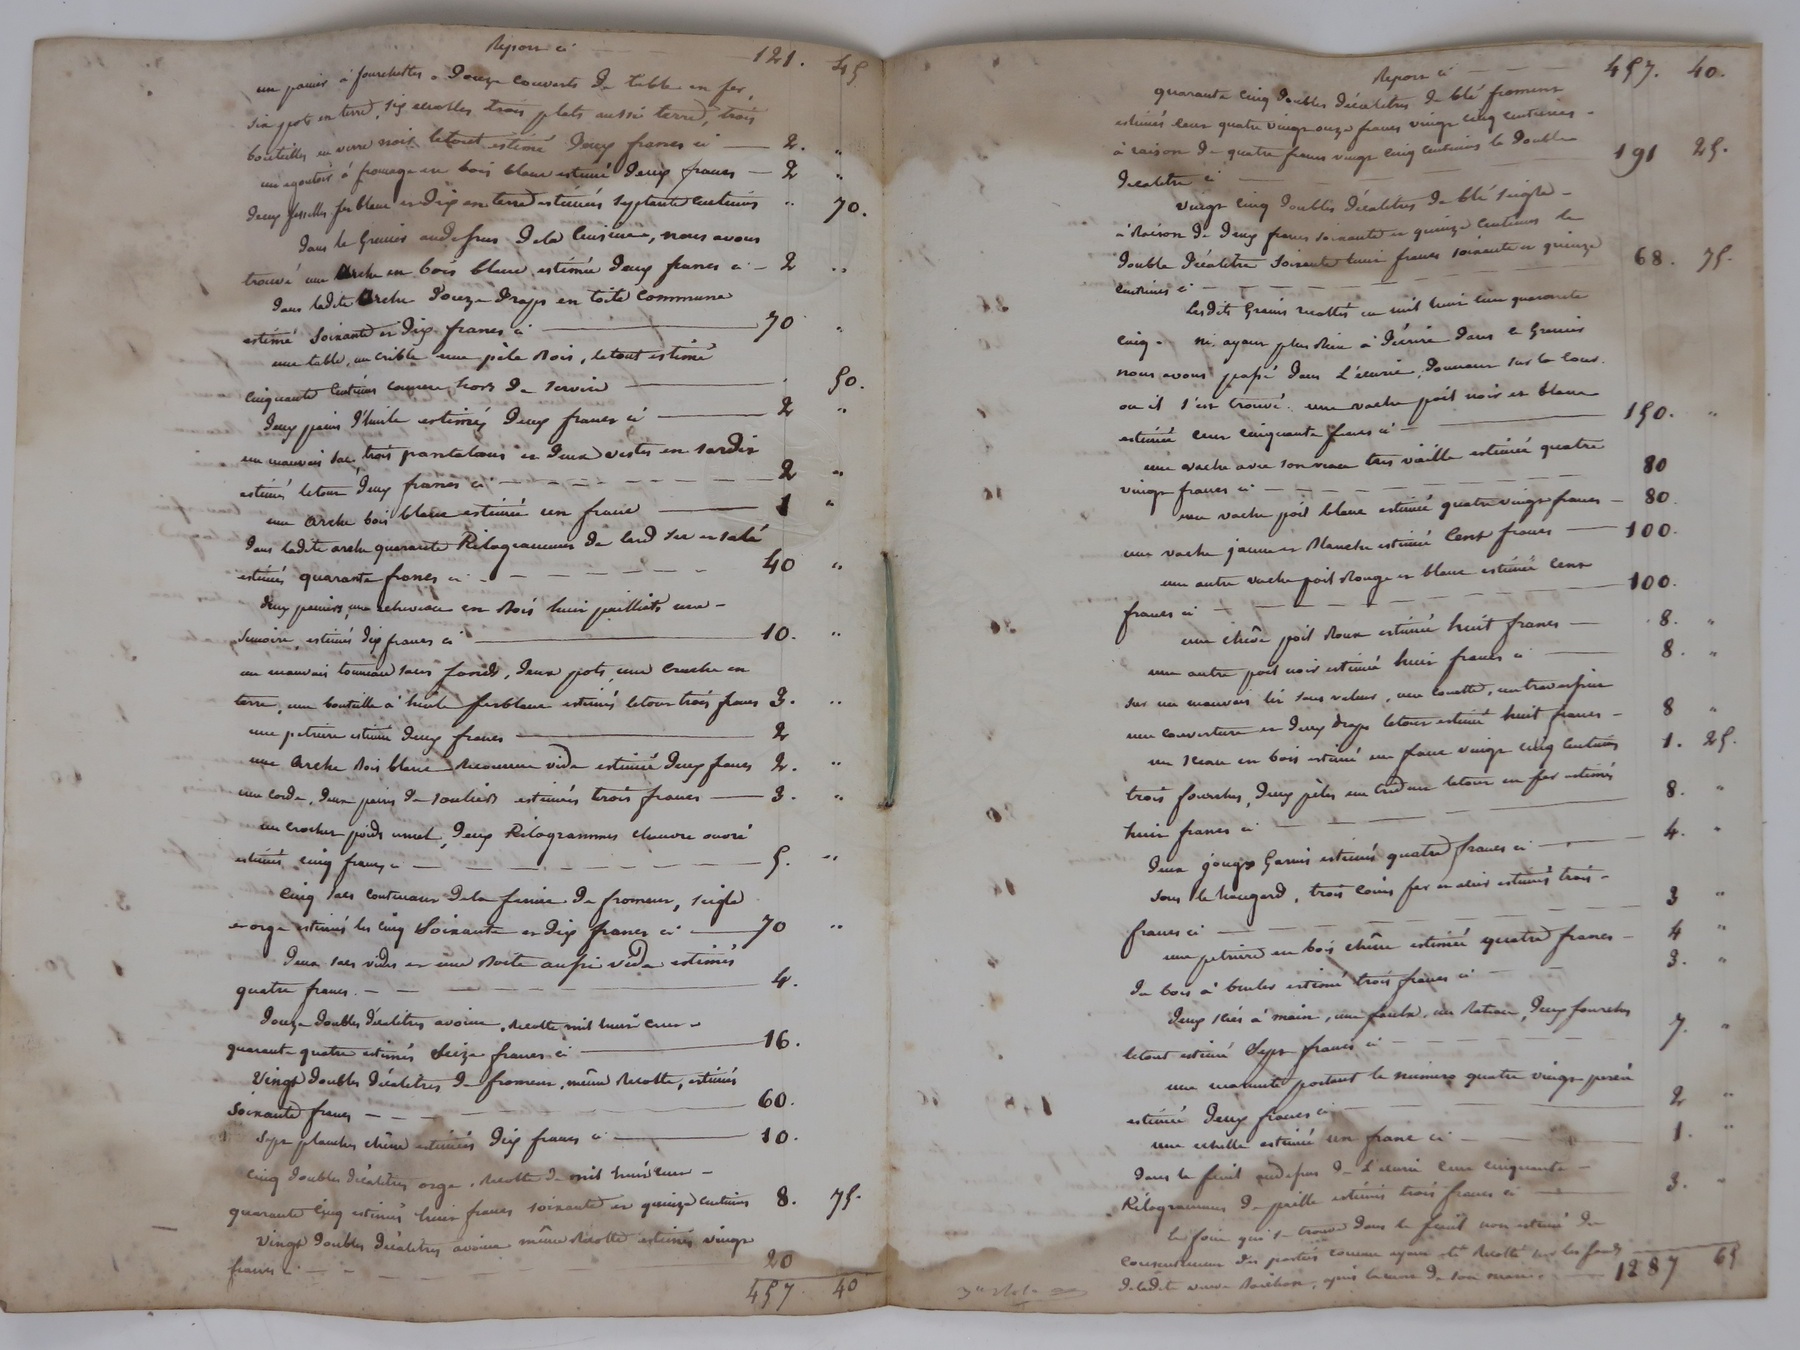 Report ci 121. 45
un panier à fourchettes, douze couverts de table en fer,
six pots en terre, six écuelles, trois plats aussi terre, trois
bouteilles en verre noir le tout estimé deux francs ci 2. "
un égoutoir à fromage en bois blanc estimé deux francs 2 "
deux faisselles fer blanc et dix en terre estimés septante centimes " 70.
dans le Grenier audessus de la Cuisine, nous avons
trouvé une Arche en bois blanc estimée deux francs ci 2 "
dans ladite Arche douze draps en toile Commune
estimé Soixante et dix francs ci 70 "
une table, un crible une pèle Bois, le tout estimé
cinquante Centimes comme hors de service . 50.
deux paires d'huile estimés deux francs ci 2 "
un mauvais sac, trois pantalons et deux vestes en sardis
estimés le tout deux francs ci 2 "
une Arche bois blanc estimée un franc 1 "
dans ladite arche quarante Kilogrammes de lard sec et salé
estimés quarante francs ci 40 "
deux paniers, une en Bois huit paillats une
Semoire, estimés dix francs ci 10. "
un mauvais tonneau sans fonds, deux pots, une cruche en
terre, une bouteille à huile ferblanc estimés le tout trois francs 3. "
une petrière estimée deux francs 2
une Arche Bois blanc Reconnue vide estimée deux francs 2. "
une corde, deux paires de souliers estimés trois francs 3. "
un crochet poids usuel, deux Kilogrammes chanvre ouvré
estimés cinq francs ci 5. "
Cinq sacs contenant de la farine de froment, seigle
et orge estimés les cinq Soixante et dix francs ci 70 "
deux sacs vides et une Boite aussi vide estimés
quatre francs. 4.
douze doubles décalitres avoine, Récolte mil huit cent
quarante quatre estimés Seize francs ci 16.
Vingt doubles décalitres de froment, même Récolte, estimés
Soixante francs 60.
Sept planches chêne estimées dix francs ci 10.
Cinq doubles décalitres orge, Récolte de mil huit cent
quarante cinq estimés huit francs soixante et quinze centimes 8. 75.
Vingt doubles décalitres avoine même Récolte estimés vingt
francs ci 20
457 40
Report ci 457. 40.
quarante cinq doubles décalitres de blé froment
estimés cent quatre vingt onze francs vingt cinq centimes
à raison de quatre francs vingt cinq centimes le double
decalitre ci 191 25.
vingt cinq doubles décalitres de blé seigle
à Raison de deux francs soixante et quinze centimes le
double décalitre Soixante huit francs soixante et quinze
centimes ci 68. 75.
Lesdits Grains récoltés en mil huit cent quarante
cinq. Ni ayant plus Rien à décrire dans le Grenier
nous avons passé dans l'écurie, donnant sur la cour.
ou il s'est trouvé. une vache poil noir et blanc
estimée cent cinquante francs ci 150. "
une vache avec son veau très vieille estimée quatre
vingt francs ci 80
une vache poil blanc estimée quatre vingt francs 80.
une vache jaune et Blanche estimée Cent francs 100.
une autre vache poil Rouge et blanc estimée Cent
francs ci 100.
une chêvre poil Roux estimée huit francs 8. "
une autre poil noir estimée huit francs ci 8. "
sur un mauvais lit sans valeur, une couette, un traversin
une couverture et deux draps le tout estimé huit francs 8 "
un Sceau en bois estimé un franc vingt cinq centimes 1. 25.
trois fourches, deux pèles un le tout en fer estimés
huit francs ci 8. "
deux jougs Garnis estimés quatre francs ci 4. "
sous le hangard, trois coins fer et acier estimés trois
francs ci 3 "
une petrière en bois chêne estimée quatre francs 4 "
du bois à bruler estimé trois francs ci 3. "
deux scies à main, une faulx, un Rateau, deux fourches
le tout estimé Sept francs ci 7. "
une marmite portant le numéro quatre vingt
estimée deux francs ci 2 "
une échelle estimée un franc ci 1. "
dans le fenil audessus de l'écurie cent cinquante
Kilogrammes de paille estimés trois francs ci 3. "
le foin qui se trouve dans le fenil non estimé du
consentement des parties comme ayant été Récolté sur les fonds
de ladite veuve, après la mort de son mari. 1287 65